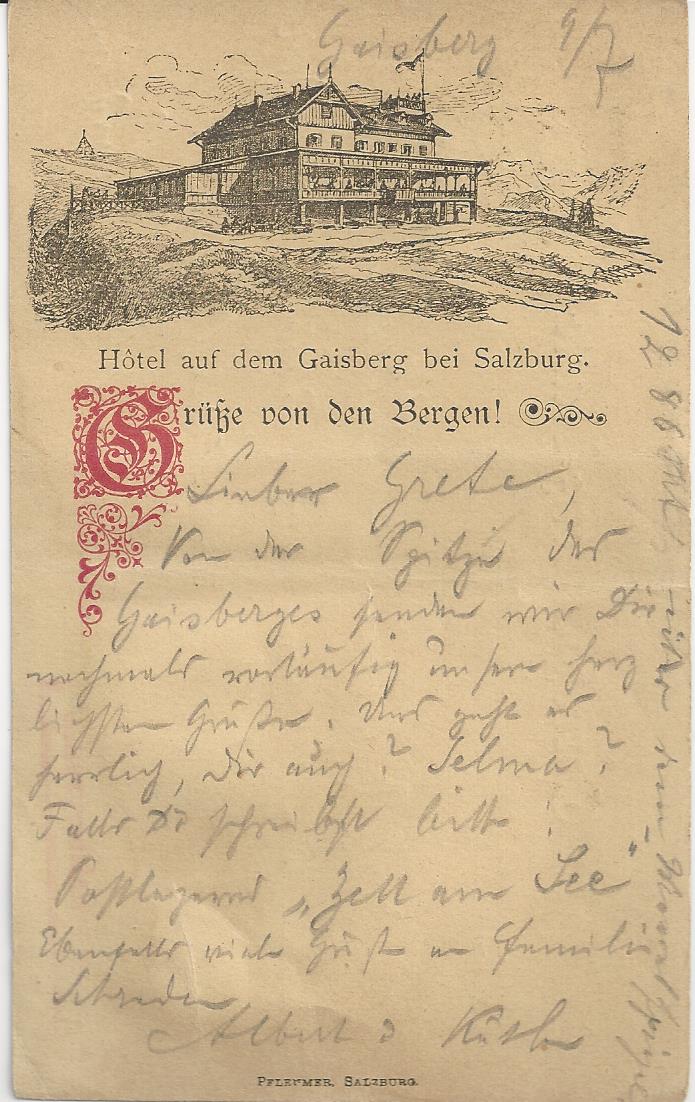 Gaisberg 9/7
Hôtel auf dem Gaisberg bei Salzburg.
Grüße von den Bergen!
Liebe Grete,
Von der Spitze des
Gaisberges senden wir Dir
nochmals vorläufig unsere herz
lichsten Grüße. Uns geht es
herrlich, Dir auch? Selma?
Falls Du schreibst bitte:
Postlagernd „Zell am See“
Ebenfalls viele Grüße an Familie
Albert u
PFLEUMER, SALZBURG.
1286
über dem